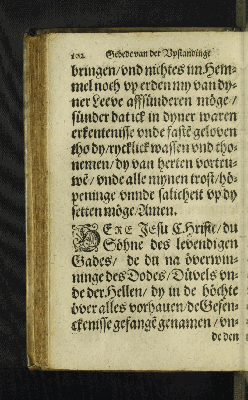 102. Gebede van der Vpstandinge
bringen/ vnd nichtes im Hem-
mel noch vp erden my van dy-
ner Leeve affsünderen möge/
sünder dat ick in dyner waren
erkentenisse vnde fastē geloven
tho dy/ rycklick wassen vnd tho-
nemen/ dy van herten vortru-
wē/ vnde alle mynen trost/ hö-
peninge vnnde salicheit vp dy
setten möge/ Amen.
HERE Jesu Christe/ du
Söhne des levendigen
Gades/ de du na överwin-
ninge des Dodes/ Düvels vn-
de der Hellen/ dy in de höchte
över alles vorhauen/ de Gefen-
ckenisse gefangē genamen/ vn-
de den